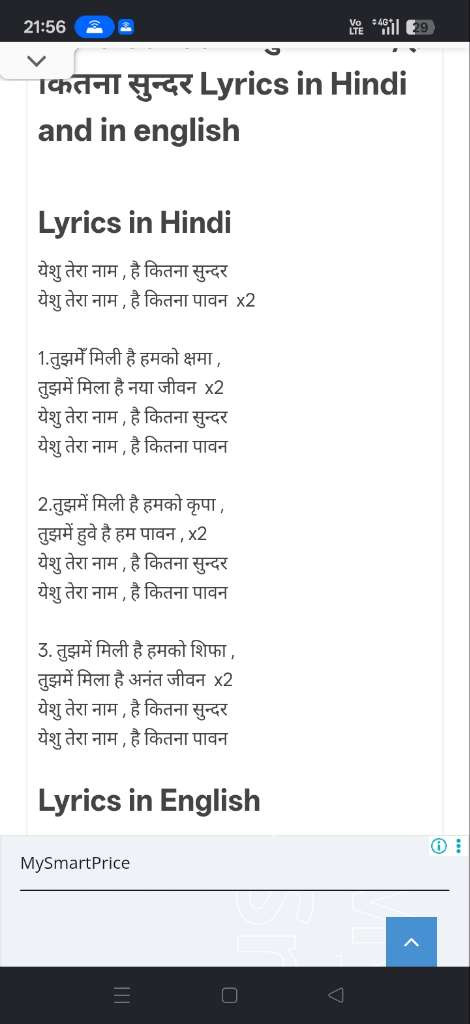 21:56
Vo LTE 4G+ 29
कितना सुन्दर Lyrics in Hindi
and in english
Lyrics in Hindi
येशु तेरा नाम , है कितना सुन्दर
येशु तेरा नाम , है कितना पावन x2
1.तुझमेँ मिली है हमको क्षमा ,
तुझमें मिला है नया जीवन x2
येशु तेरा नाम , है कितना सुन्दर
येशु तेरा नाम , है कितना पावन
2.तुझमें मिली है हमको कृपा ,
तुझमें हुवे है हम पावन , x2
येशु तेरा नाम , है कितना सुन्दर
येशु तेरा नाम , है कितना पावन
3. तुझमें मिली है हमको शिफा ,
तुझमें मिला है अनंत जीवन x2
येशु तेरा नाम , है कितना सुन्दर
येशु तेरा नाम , है कितना पावन
Lyrics in English
MySmartPrice